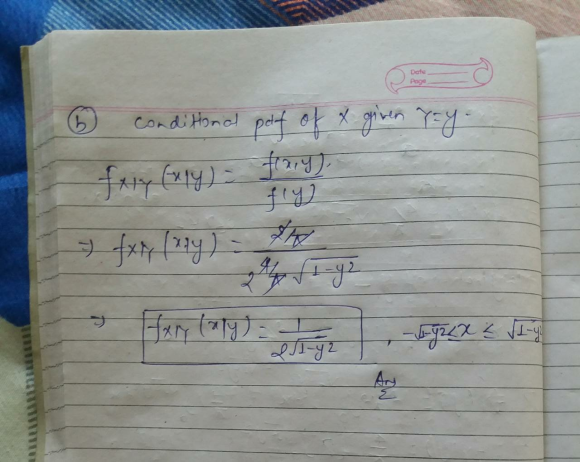 Date
Page
(b) Conditional pdf of X given Y=y.
f_{X|Y} (x|y) = f(x,y) / f(y)
⇒ f_{X|Y} (x|y) = 2/π / 2 2/π √(1-y²)
⇒ f_{X|Y} (x|y) = 1 / 2√(1-y²) , -√(1-y²) ≤ x ≤ √(1-y²
Ans